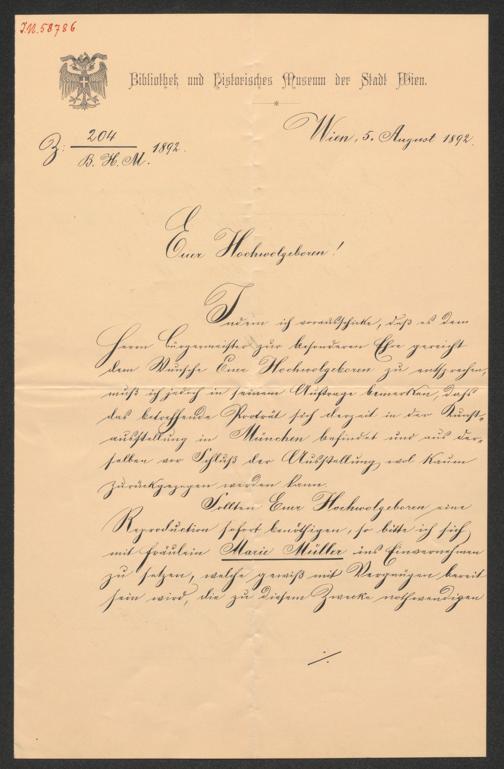 I.N. 58786
Bibliothek und Historisches Museum der Stadt Wien.
Wien, 5. August 1892.
Z: 204 / B. H. M. 1892.
Euer Hochwolgeboren!
Indem ich vorausschicke, daß es dem
Herrn Bürgermeister zur besonderen Ehre gereicht
dem Wunsche Euer Hochwolgeboren zu entsprechen,
muß ich jedoch in seinem Auftrage bemerken, daß
das betreffende Porträt sich derzeit in der Kunst-
ausstellung in München befindet und aus der-
selben vor Schluß der Ausstellung wol kaum
zurückgezogen werden kann.
Sollten Euer Hochwolgeboren eine
Reproduction sofort benöthigen, so bitte ich sich
mit Fräulein Marie Müller ins Einvernehmen
zu setzen, welche gewiß mit Vergnügen bereit
sein wird, die zu diesem Zwecke nothwendigen
./.